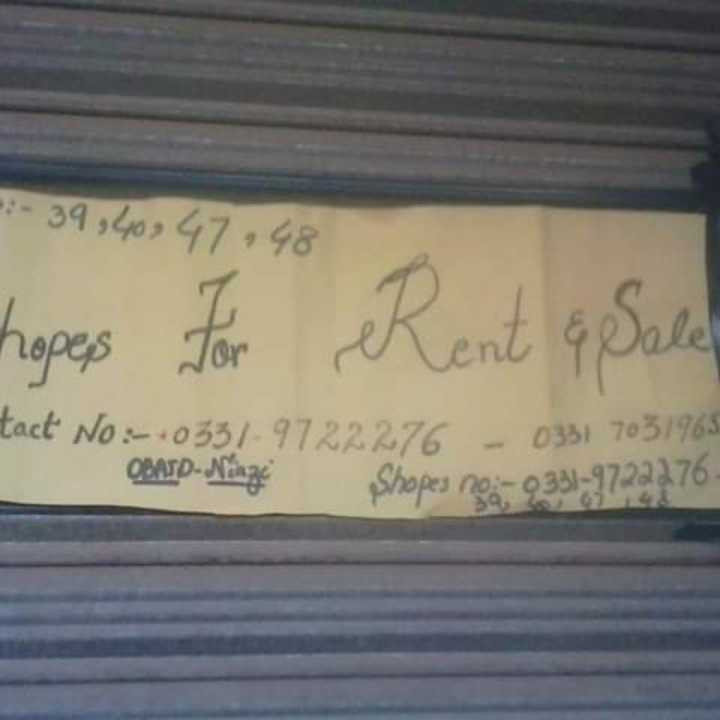 :- 39, 40, 47, 48
hopes For Rent & Sale
tact No:- 0331-9722276 - 0331 7031963
OBAID-Niazi
Shopes no:- 0331-9722276-
39, 40, 47, 48